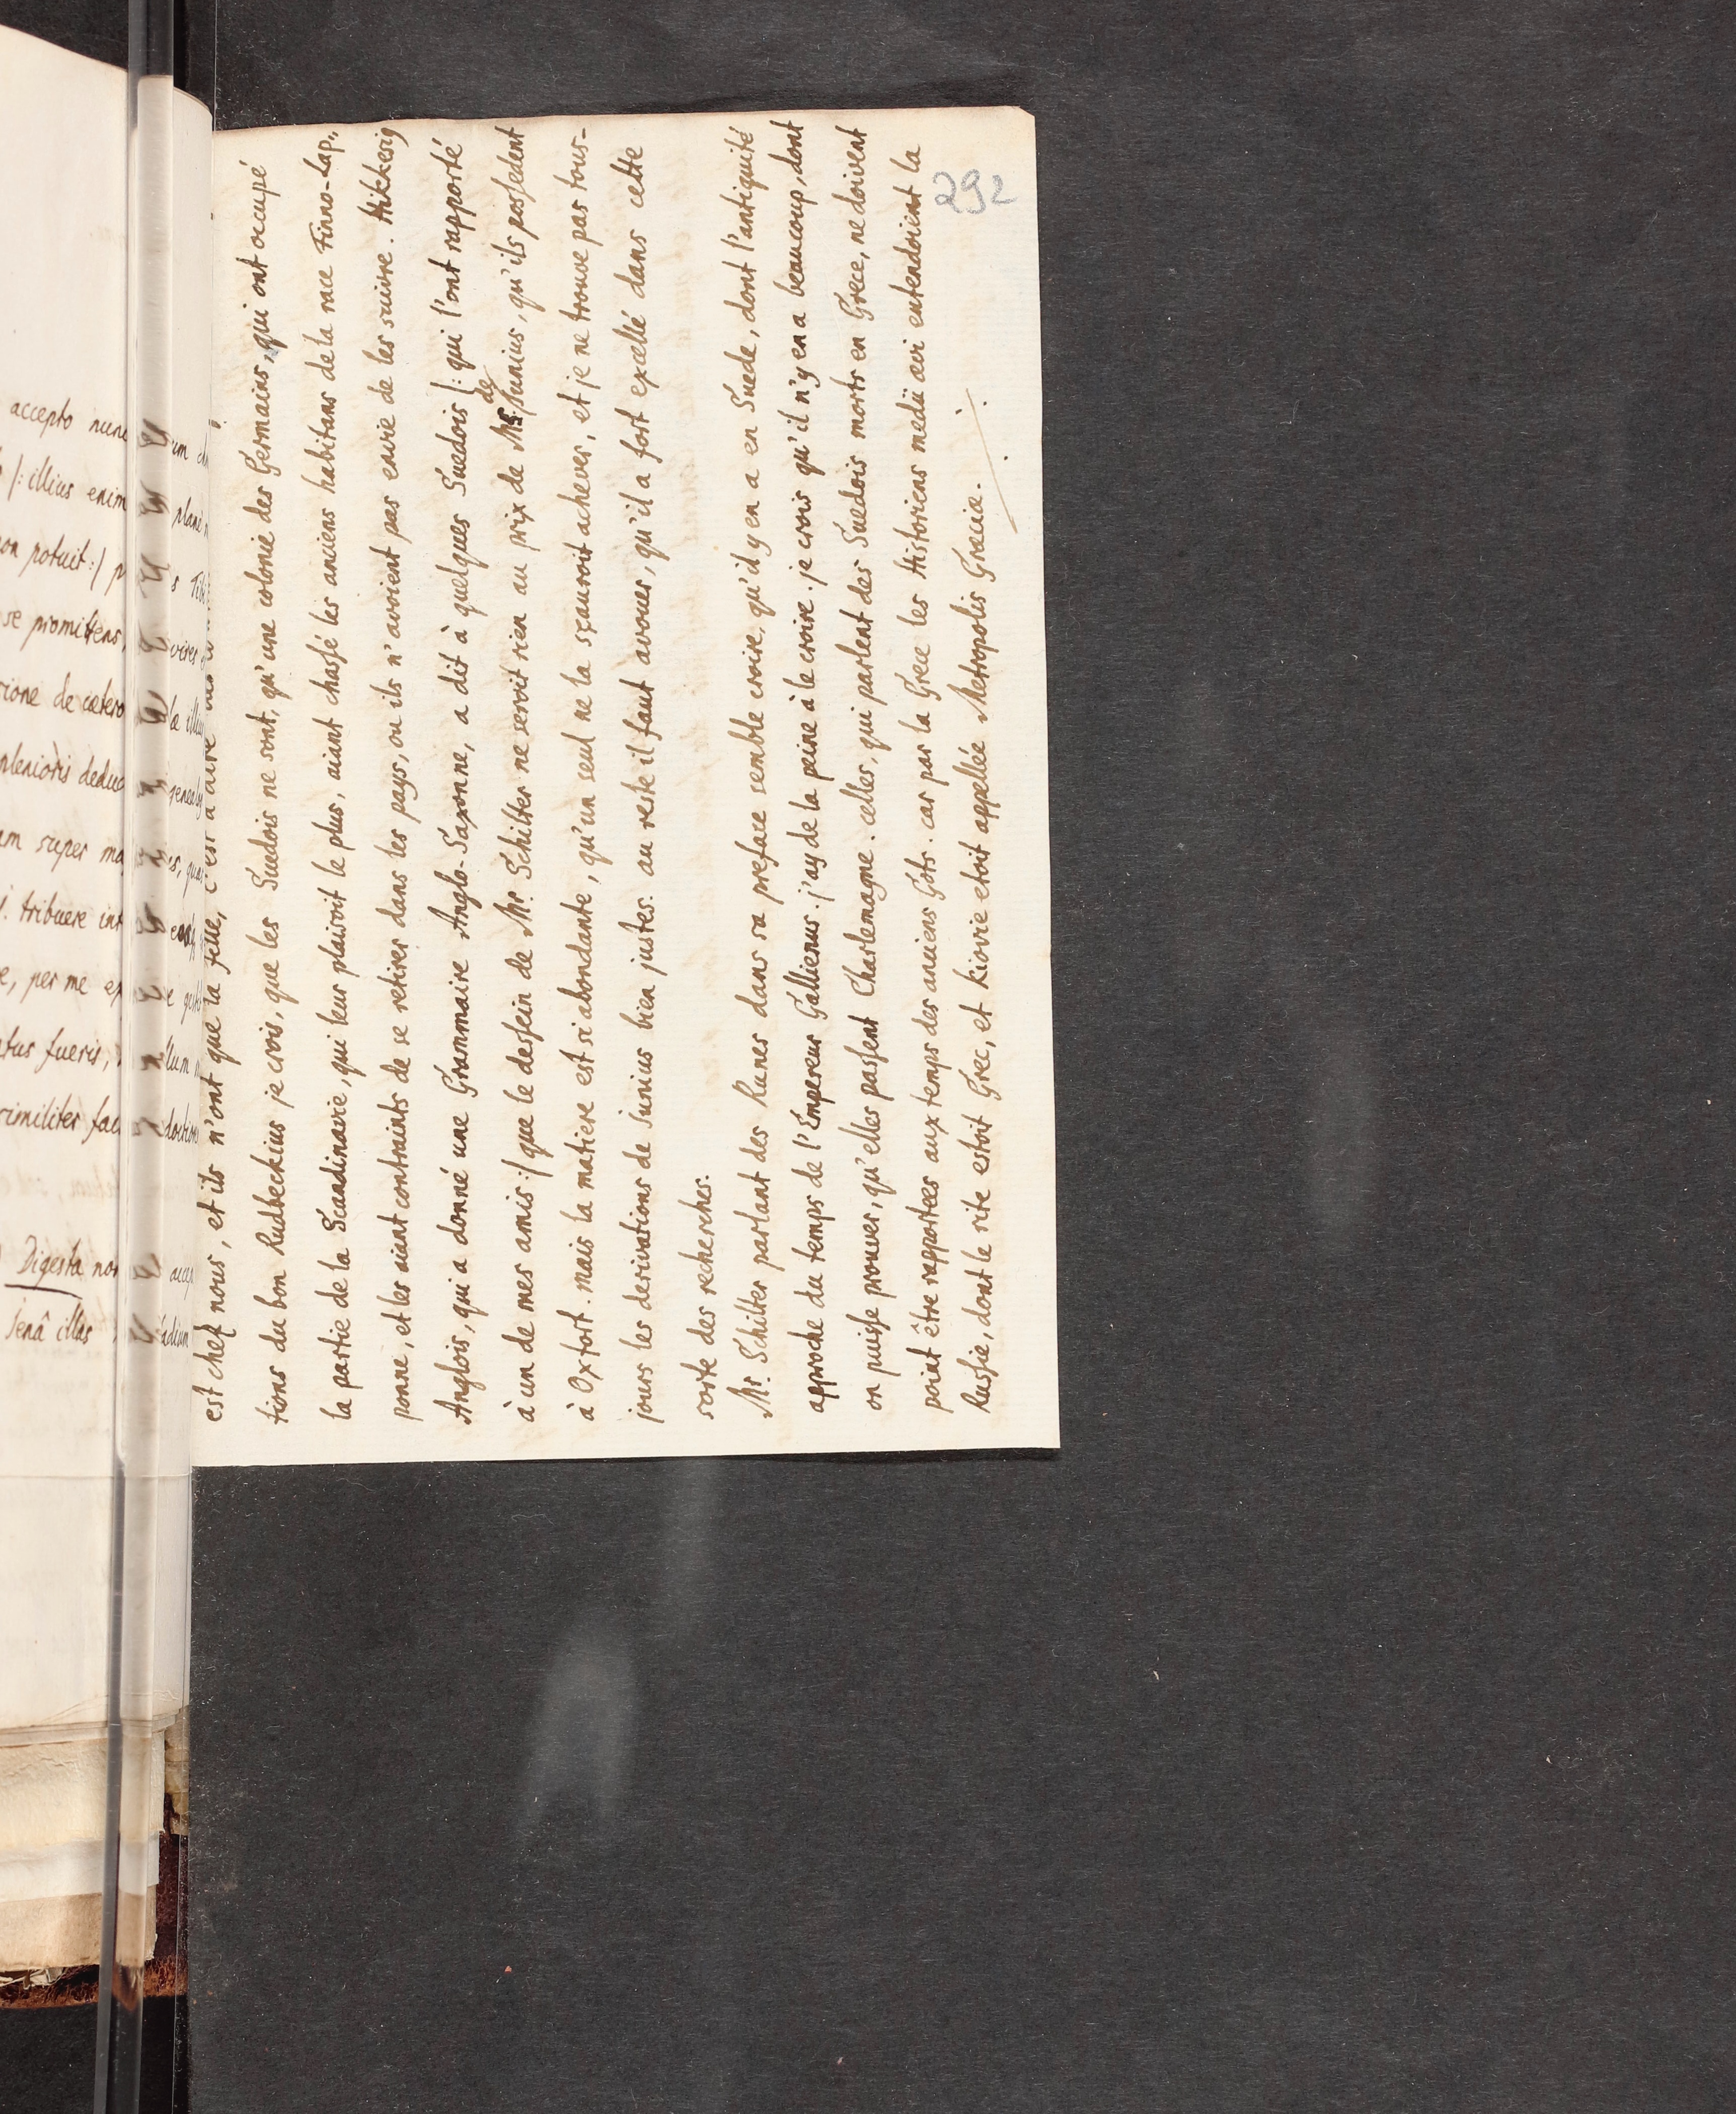 accepto nunc
/: illius enim
potuit :/
se promittens,
de cætero
plenioris
super
tribuere
per me
fueris,
similiter
Digesta
Jenâ illas
292
est chef nous, et ils n'ont que la selle, c'est à dire
tions du bon Rudbeckius je crois, que les Suedois ne sont, qu'une colonie des Germains, qui ont occupé
la partie de la Scandinavie, qui leur plaisoit le plus, aiant chassé les anciens habitans de la race Finno-Lap„
ponne, et les aiant contraints de se retirer dans les pays, ou ils n'avoient pas envie de les suivre. Hikkerig
Anglois, qui a donné une Grammaire Anglo-Saxonne, a dit à quelques Suedois /: qui l'ont rapporté
à un de mes amis :/ que le dessein de Mr. Schilter ne seroit rien au prix de de Junius, qu'ils possedent
à Oxfort. mais la matiere est si abondante, qu'un seul ne la sçauroit achever, et je ne trouve pas tous-
jours les derivations de Junius bien justes. au reste il faut avouer, qu'il a fort excellé dans cette
sorte des recherches.
Mr. Schilter parlant des Runes dans sa preface semble croire, qu'il y en a en Suede, dont l'antiquité
approche du temps de l'Empereur Gallienus. j'ay de la peine à le croire. je crois qu'il n'y en a beaucoup, dont
on puisse prouver, qu'elles passent Charlemagne. celles, qui parlent des Suedois morts en Grece, ne doivent
point être rapportées aux temps des anciens Gots. car par la Grece les Historiens medii ævi entendoient la
Russie, dont le rite estoit Grec, et Kiovie etoit appellée Metropolis Græciæ.